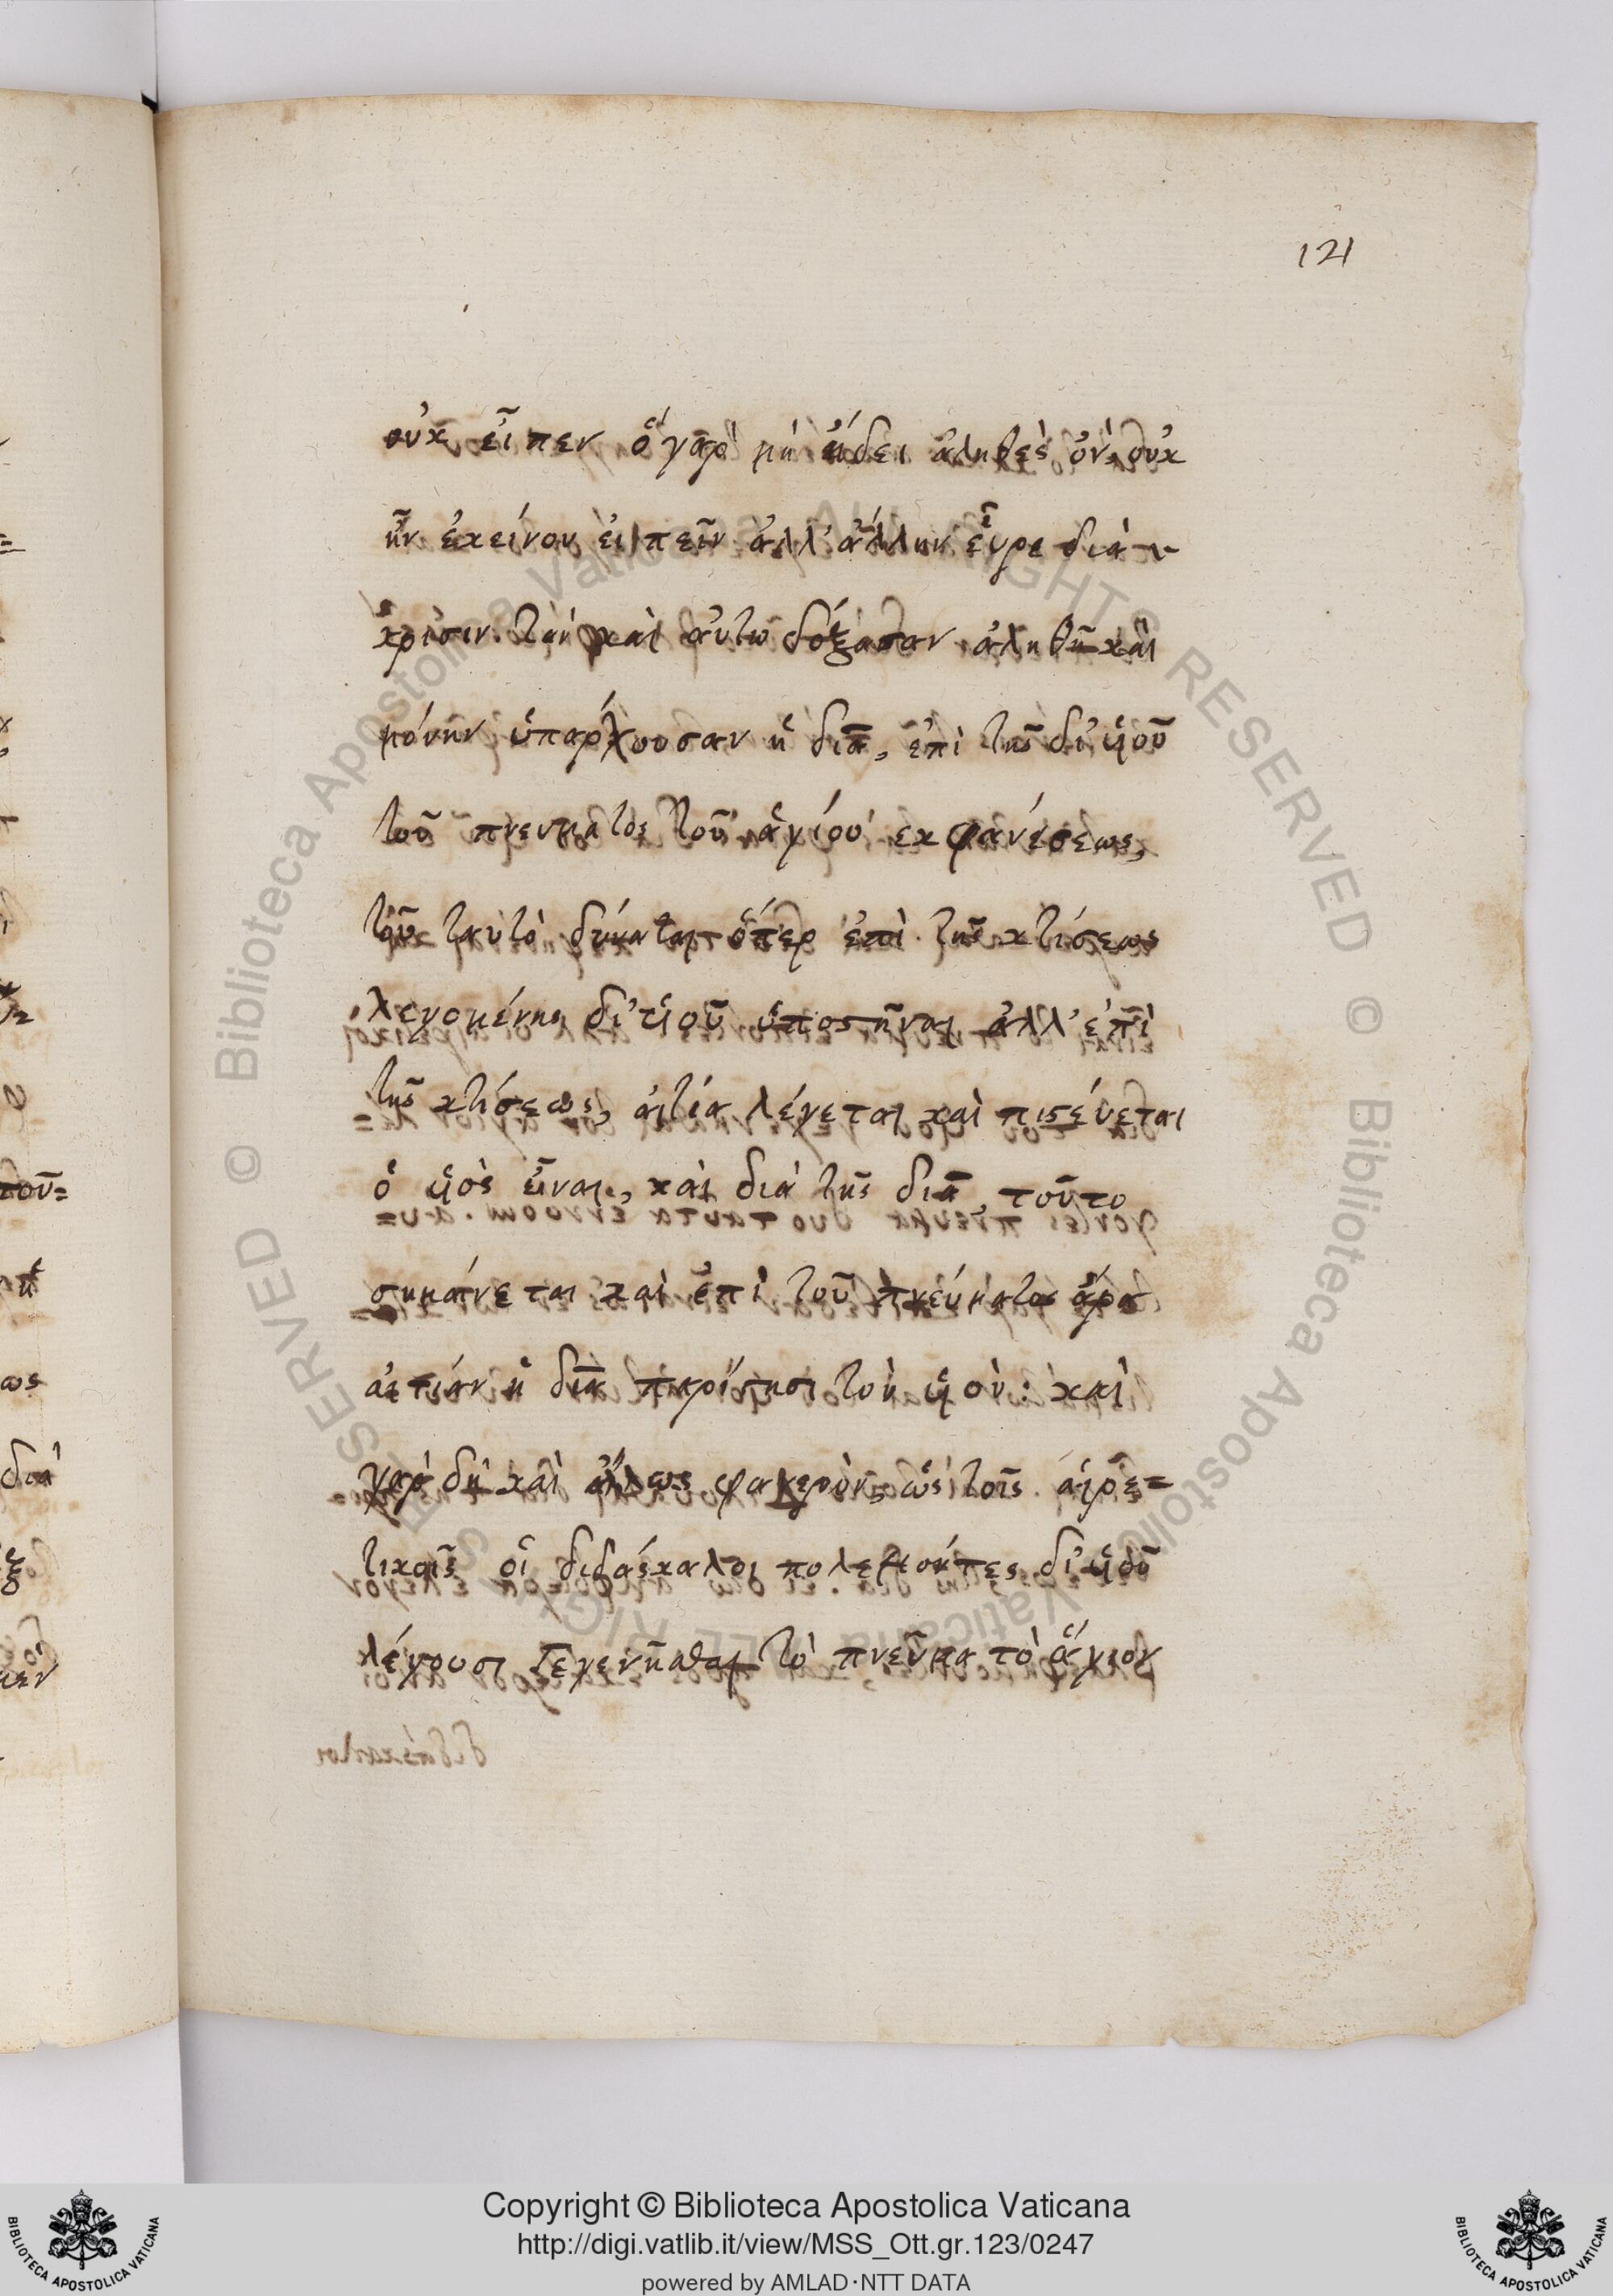 121
οὐκ εἶπεν ὅ γὰρ μὴ ᾔδει ἀληθὲς ὂν, οὐκ
ἦν ἐκείνου εἰπεῖν ἀλλ' ἄλλην εὗρε διά-
κρισιν τὴν καὶ αὐτῶ δόξασαν ἀληθῆ καὶ
μόνην ὑπάρχουσαν ἡ διὰ, ἐπὶ τῆς δι' υἱοῦ
τοῦ πνεύματος τοῦ ἁγίου ἐκφάνσεως,
τοῦ ταυτὸ δύναται ὅπερ ἐπὶ τῆς κτίσεως
λεγομένης δι' υἱοῦ ὑποστῆναι ἀλλ' ἐπὶ
τῆς κτίσεως, αἰτία λέγεται καὶ πιστεύεται
ὁ υἱὸς εἶναι, καὶ διὰ τῆς διὰ, τοῦτο
σημαίνεται καὶ ἐπὶ τοῦ πνεύματος ἄρα
αἰτίαν ἡ διὰ παρίστησι τὸν υἱόν: καὶ
γὰρ δὴ καὶ ἄλλως φανερὸν, ὡς τοῖς αἱρε=
τικοῖς οἱ διδάσκαλοι πολεμοῦντες δι' υἱοῦ
λέγουσι γεγενῆσθαι τὸ πνεῦμα τὸ ἅγιον
Copyright © Biblioteca Apostolica Vaticana
http://digi.vatlib.it/view/MSS_Ott.gr.123/0247
powered by AMLAD·NTT DATA
BIBLIOTECA APOSTOLICA VATICANA
BIBLIOTECA APOSTOLICA VATICANA